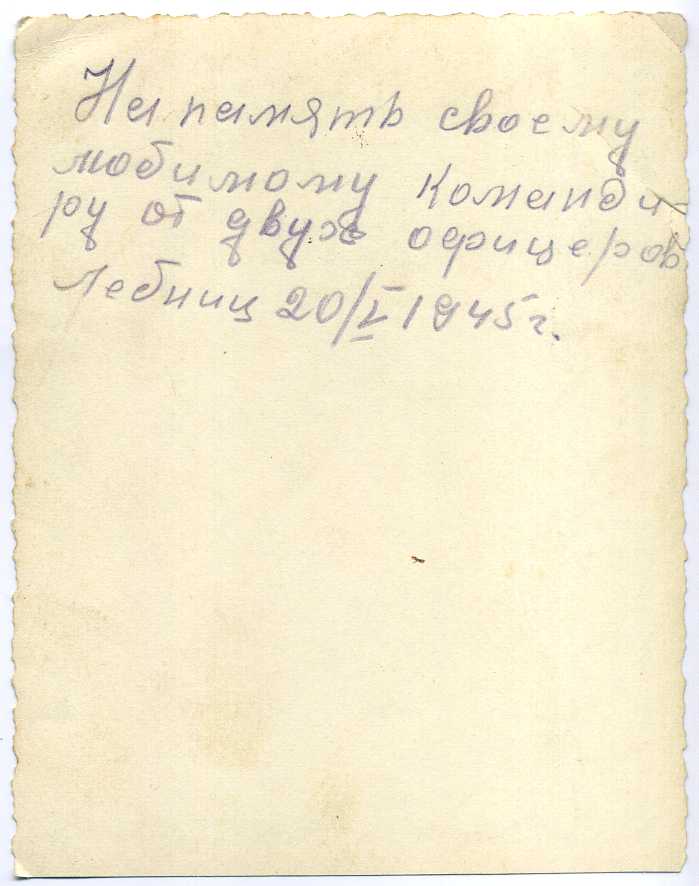 На память своему
любимому команди-
ру от двух офицеров
Лебниц 20/V 1945 г.